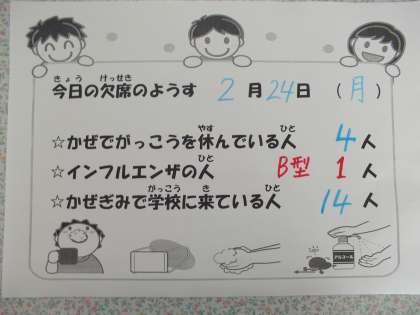 今日の欠席のようす 2月24日（月）
きょう けっせき
☆かぜでがっこうを休んでいる人 4人
やす ひと
☆インフルエンザの人 B型 1人
ひと
☆かぜぎみで学校に来ている人 14人
がっこう き ひと
アルコール